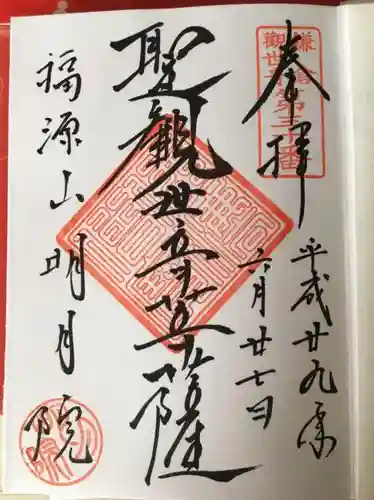 奉拝
鎌倉
觀世音
第三十番
平成廿九年
六月廿七日
聖観世音菩薩
福源山明月院